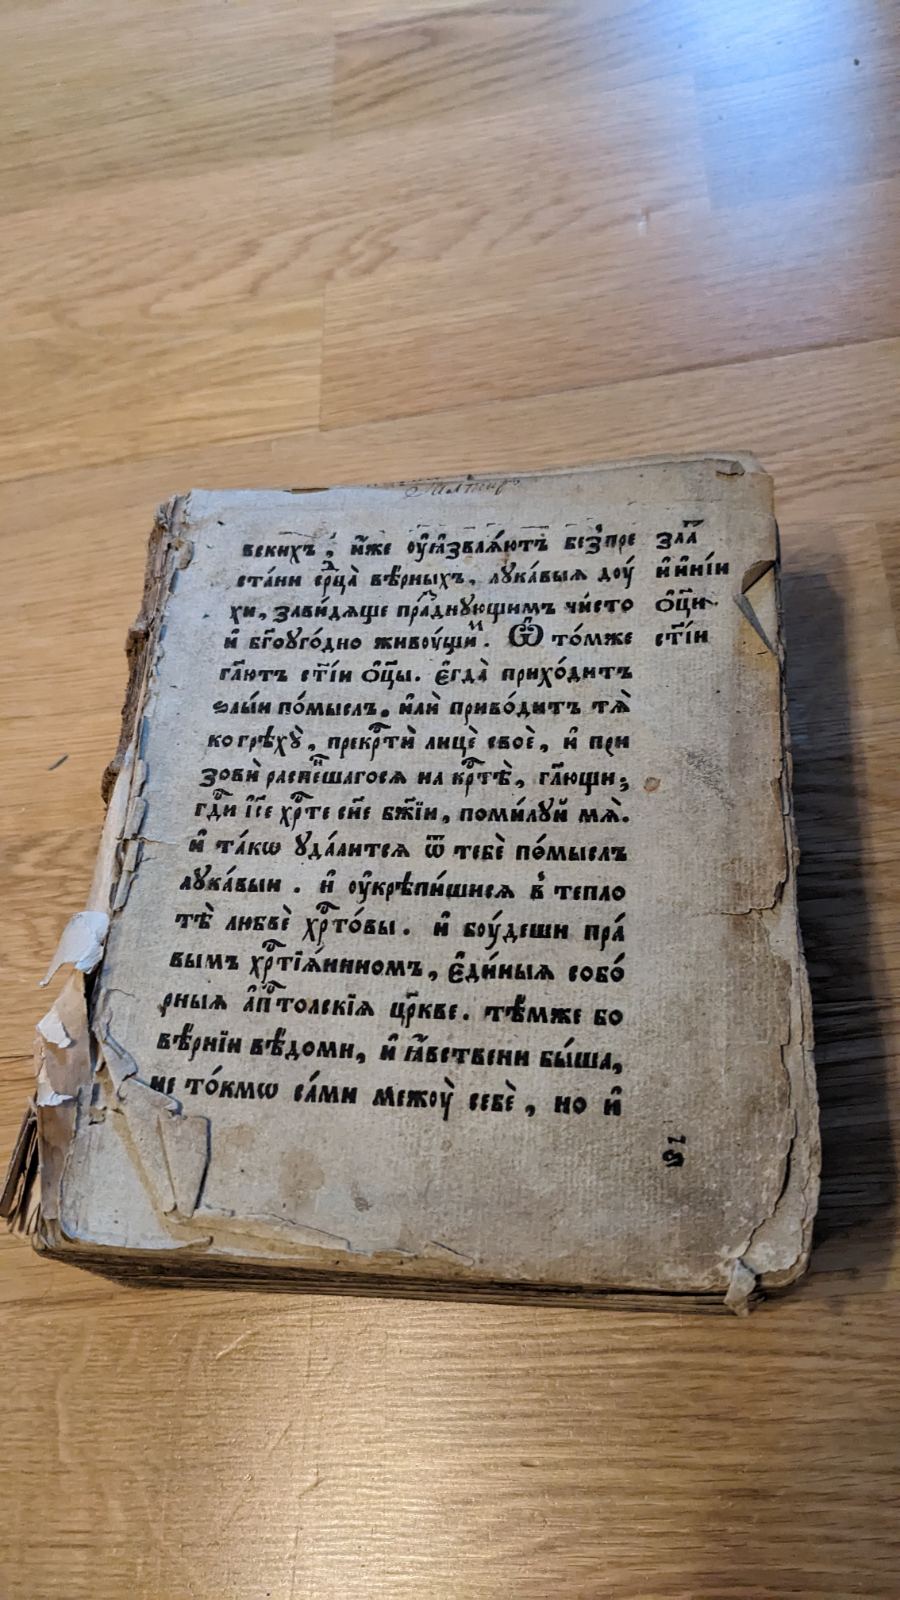 Ѱалтиръ
вскихъ, и҆́же оу҆ꙗ҆звлѧ́ютъ безпре
ста́ни срⷣца̀ вѣ́рныхъ, лꙋка́выѧ доу́
хи, зави́дѧще пра́зднꙋющимъ чи́сто
и҆ бг҃оуго́дно живоу́щиⷨ. Ѽ то́мже
гл҃ютъ ст҃і́и ѻ҆ц҃ы. є҆гда̀ прихо́дитъ
ѕлы́и по́мыслъ, и҆лѝ приво́дитъ тѧ̀
ко грѣхꙋ̀, прекрⷭ҇тѝ лицѐ своѐ, и҆ при
зовѝ распе́ншагосѧ на крⷭ҇тѣ̀, гл҃ющи;
гдⷭ҇и і҆с҃е хрⷭ҇те сн҃е бж҃їи, поми́лꙋй мѧ̀.
и҆ та́кѡ ᲂудали́тсѧ ѿ тебѐ по́мыслъ
лꙋка́выи. и҆ оу҆крѣпи́шисѧ в̾ тепло
тѣ̀ любвѐ хрⷭ҇то́вы. и҆ боу́деши пра́
вымъ хрⷭ҇тїѧ́нином̾ъ, є҆ди́ныѧ собо́
рныѧ а҆пⷭ҇толскїѧ цр҃кве. тѣ́мже бо
вѣ́рнїи вѣ́доми, и҆ ꙗ҆́вствени бы́ша,
не то́кмѡ са́ми межоу̀ себѐ, но и҆
зла̀
и҆ и҆ні́и
ѻ҆ц҃и
ст҃і́и